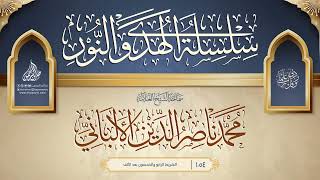 سلسلة الهدى والنور
سماحة الشيخ العلامة
محمد ناصر الدين الألباني
١٠٥٤
الشريط الرابع والخمسون بعد الألف